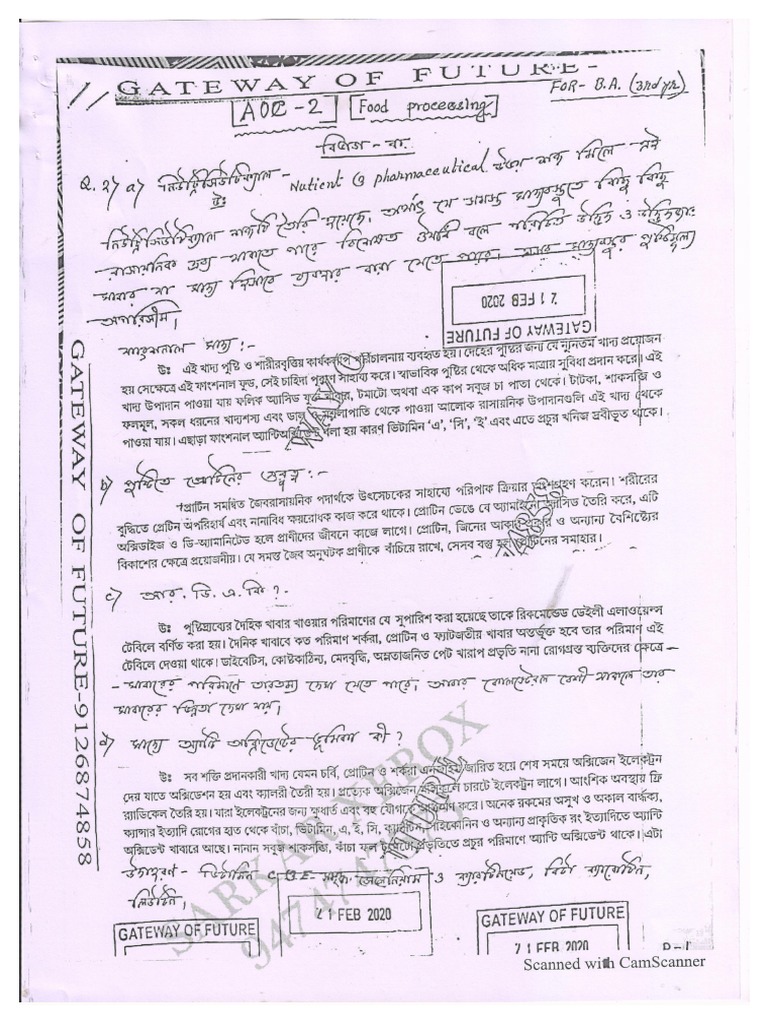 GATEWAY OF FUTURE -
FOR- B.A. (3rd yr)
AOC - 2 Food processing
বিভাগ - ক
Q. 2) a) নিউট্রাসিউটিক্যাল -
উঃ Nutient ও pharmaceutical
21 FEB 2020
GATEWAY OF FUTURE
অপরিসীম।
ফাংশনাল খাদ্য :-
উঃ এই খাদ্য পুষ্টি ও শারীরবৃত্তিয় কার্যকলাপ পরিচালনায় ব্যবহৃত হয়। দেহের পুষ্টির জন্য যে ন্যুনতম খাদ্য প্রয়োজন
হয় সেক্ষেত্রে এই ফাংশনাল ফুড, সেই চাহিদা পূরণে সাহায্য করে। স্বাভাবিক পুষ্টির থেকে অধিক মাত্রায় সুবিধা প্রদান করে। এই
খাদ্য উপাদান পাওয়া যায় ফলিক অ্যাসিড যুক্ত খাবার, টমাটো অথবা এক কাপ সবুজ চা পাতা থেকে। টাটকা, শাকসব্জি ও
ফলমূল, সকল ধরনের খাদ্যশস্য এবং ডাল ও মশলাপাতি থেকে পাওয়া আলোক রাসায়নিক উপাদানগুলি এই খাদ্য থেকে
পাওয়া যায়। এছাড়া ফাংশনাল অ্যান্টিঅক্সিডেন্ট বলা হয় কারণ ভিটামিন 'এ', 'সি', 'ই' এবং এতে প্রচুর খনিজ দ্রবীভূত থাকে।
b) পুষ্টিতে প্রোটিনের গুরুত্ব :-
প্রোটিন সমন্বিত জৈবরাসায়নিক পদার্থকে উৎসেচকের সাহায্যে পরিপাক ক্রিয়ার অংশগ্রহণ করেন। শরীরের
বৃদ্ধিতে প্রোটিন অপরিহার্য এবং নানাবিধ ক্ষয়রোধক কাজ করে থাকে। প্রোটিন ভেঙে যে অ্যামাইনো অ্যাসিড তৈরি করে, এটি
অক্সিডাইজ ও ডি-অ্যামানিটেড হলে প্রাণীদের জীবনে কাজে লাগে। প্রোটিন, জিনের আকার প্রকার ও অন্যান্য বৈশিষ্ট্যের
বিকাশের ক্ষেত্রে প্রয়োজনীয়। যে সমস্ত জৈব অনুঘটক প্রাণীকে বাঁচিয়ে রাখে, সেসব বস্তু মূলত প্রোটিনের সমাহার।
c) আর. ডি. এ. কি ? -
উঃ পুষ্টিদ্রব্যের দৈহিক খাবার খাওয়ার পরিমাণের যে সুপারিশ করা হয়েছে তাকে রিকমেন্ডেড ডেইলী এলাওয়েন্স
টেবিলে বর্ণিত করা হয়। দৈনিক খাবাবে কত পরিমাণ শর্করা, প্রোটিন ও ফ্যাটজাতীয় খাবার অন্তর্ভূক্ত হবে তার পরিমাণ এই
টেবিলে দেওয়া থাকে। ডাইবেটিস, কোষ্টকাঠিন্য, মেদবৃদ্ধি, অম্লতাজনিত পেট খারাপ প্রভৃতি নানা রোগগ্রস্ত ব্যক্তিদের ক্ষেত্রে -
- খাবারের পরিমাণে তারতম্য দেখা যেতে পারে। আবার কোলেস্টেরল বেশী থাকলে তার
খাবারের ভিন্নতা দেখা যায়।
d) খাদ্যে অ্যান্টি অক্সিডেন্টের ভূমিকা কী ?
উঃ সব শক্তি প্রদানকারী খাদ্য যেমন চর্বি, প্রোটিন ও শর্করা জারিত হয়ে শেষ সময়ে অক্সিজেন ইলেকট্রন
দের যাতে অক্সিডেশন হয় এবং ক্যালরী তৈরী হয়। প্রত্যেক অক্সিজেন চারটে ইলেকট্রন লাগে। আংশিক অবস্থায় ফ্রি
র‍্যাডিকেল তৈরি হয়। যারা ইলেকট্রনের জন্য ক্ষুধার্ত এবং বহু যৌগকে আক্রমণ করে। অনেক রকমের অসুখ ও অকাল বার্ধক্য,
ক্যান্সার ইত্যাদি রোগের হাত থেকে বাঁচা, ভিটামিন, এ, ই, সি, ও অন্যান্য প্রাকৃতিক রং ইত্যাদিতে অ্যান্টি
অক্সিডেন্ট খাবারে আছে। নানান সবুজ শাকসব্জি, কাঁচা ফল টমেটো প্রভৃতিতে প্রচুর পরিমাণে অ্যান্টি অক্সিডেন্ট থাকে। এটা
উদাহরণ - ভিটামিন C ও E সেলেনিয়াম ও বিটা ক্যারোটিন,
লিউটিন।
GATEWAY OF FUTURE-9126874858
SARKAR XEROX
GATEWAY OF FUTURE
21 FEB 2020
GATEWAY OF FUTURE
21 FEB 2020
P-1
Scanned with CamScanner